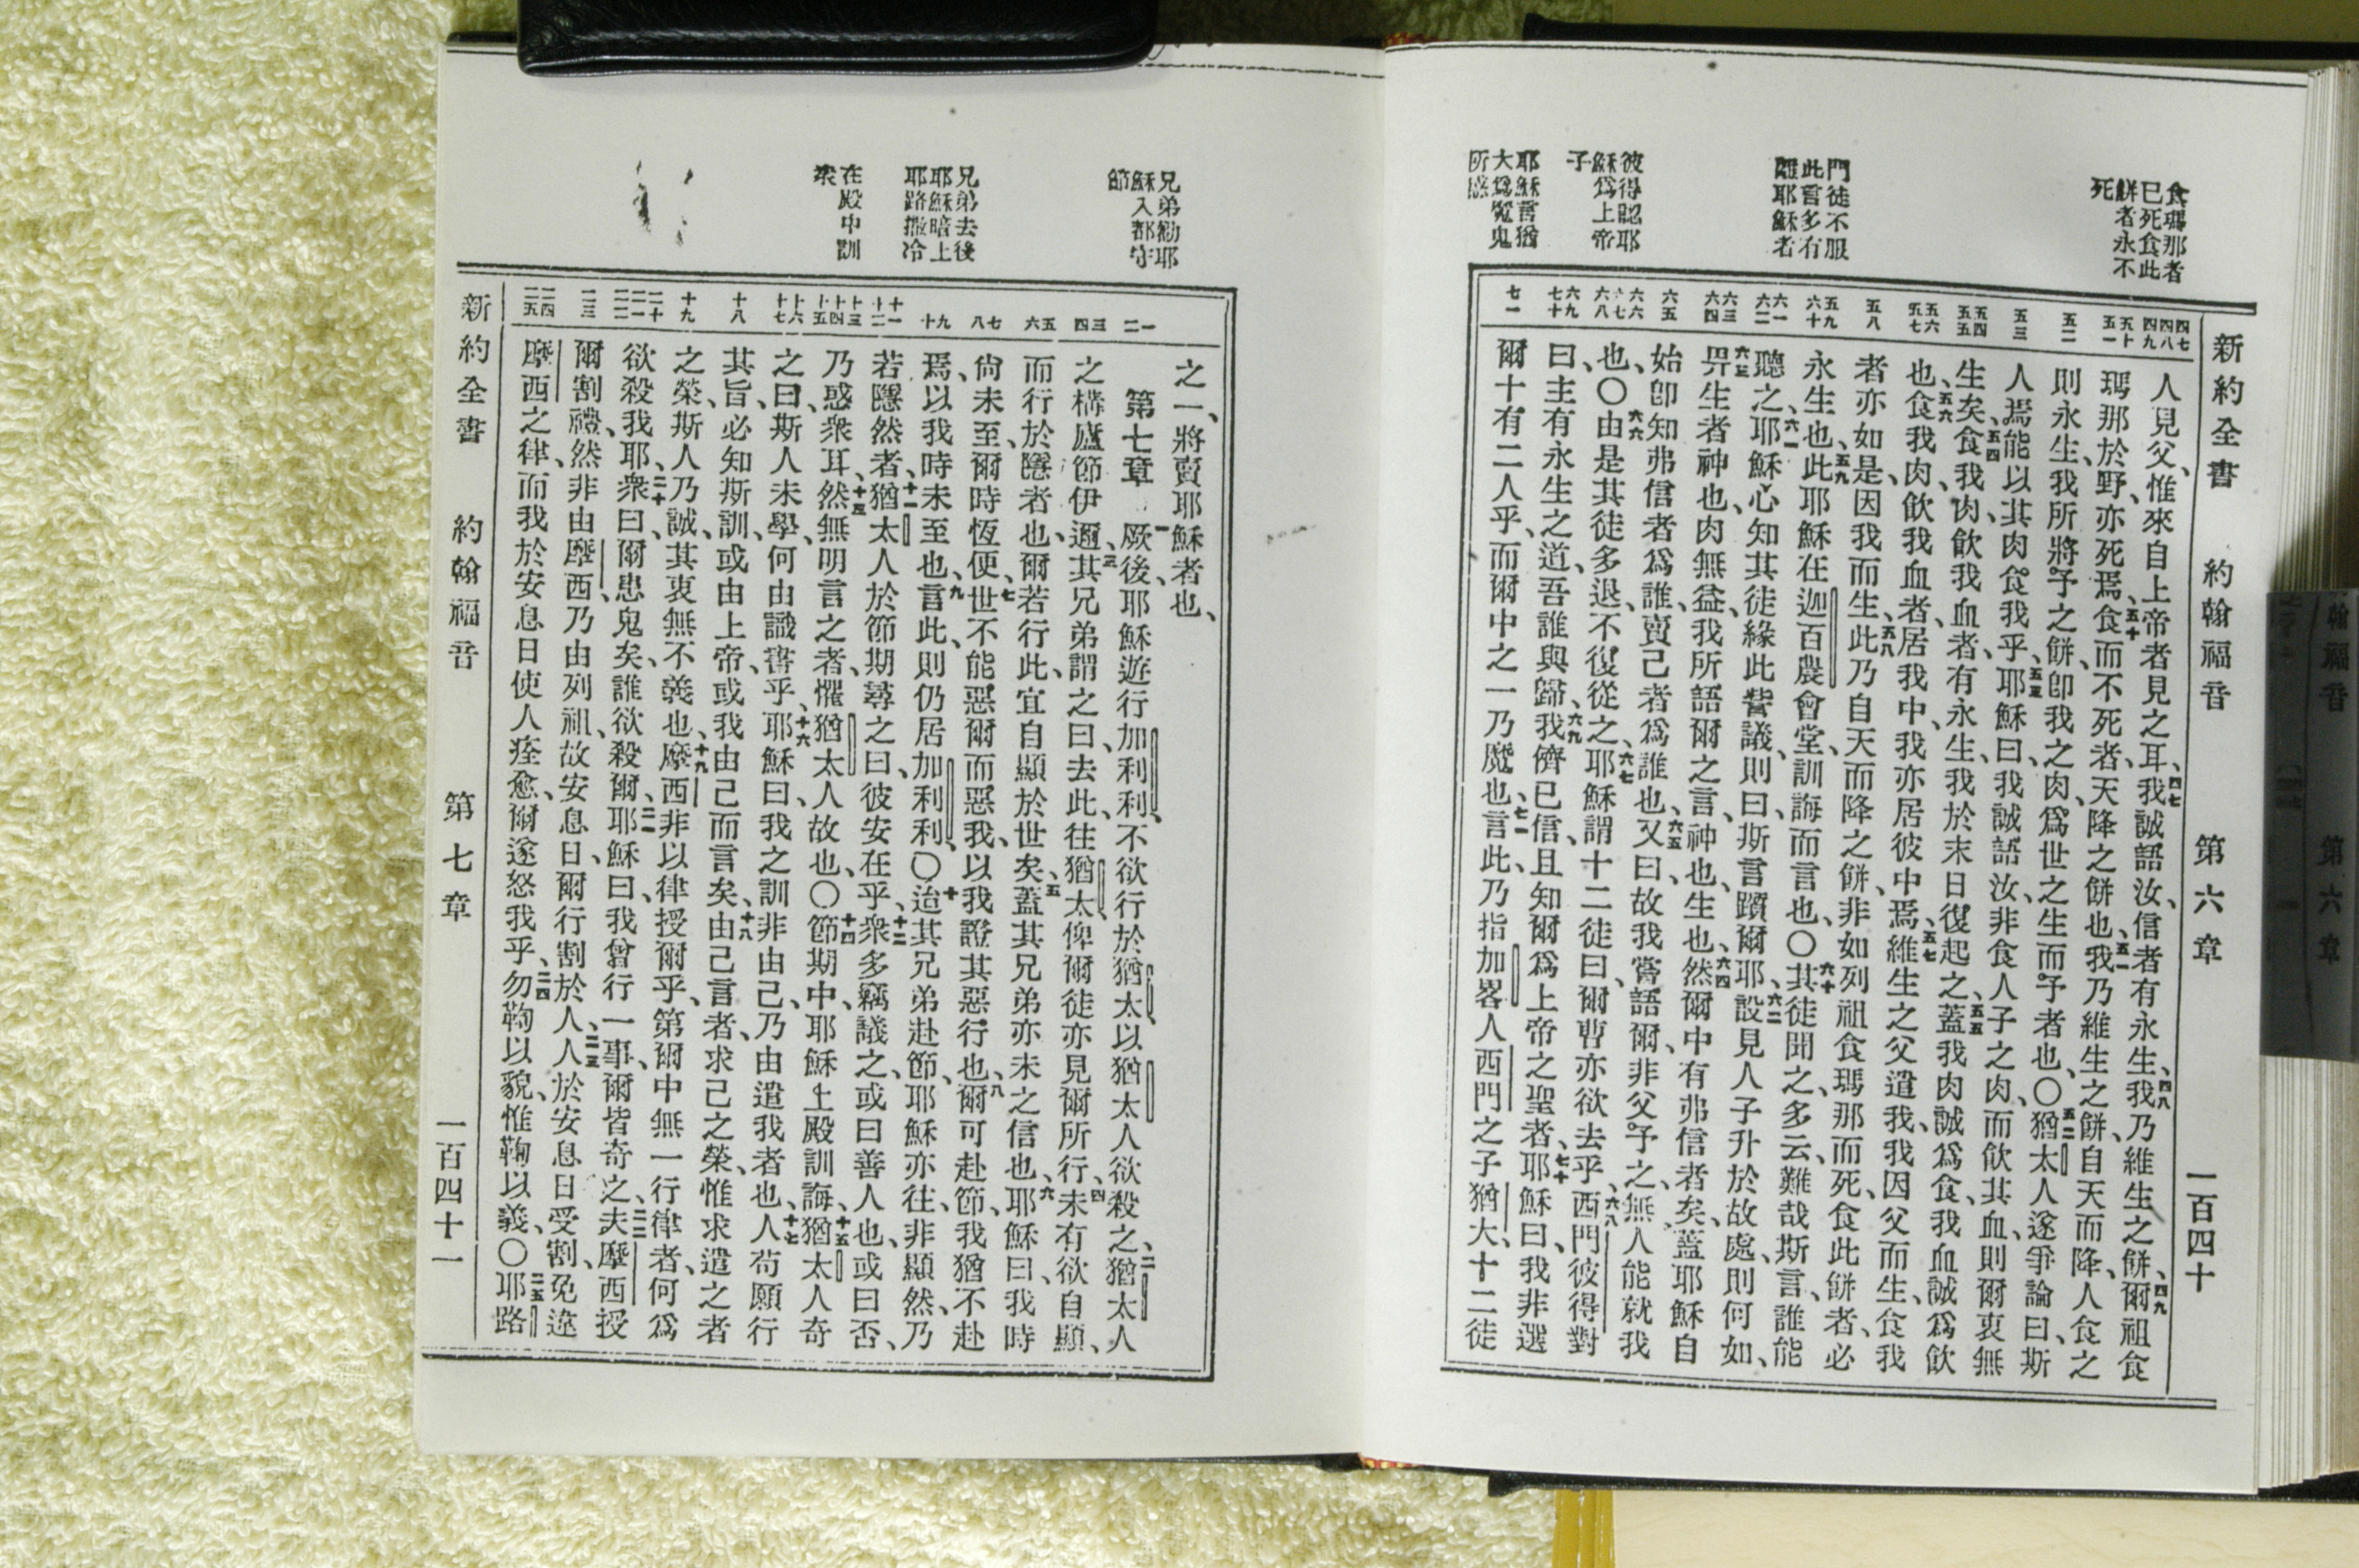 新約全書 約翰福音 第六章 一百四十
食瑪那者
已死食此
餅者永不
死
門徒不服
此言多有
離耶穌者
彼得認耶
穌爲上帝
子
耶穌言猶
大爲魔鬼
所惑
四七 四八 四九
五十 五一
五二
五三
五四 五五
五六 五七
五八
五九 六十
六一 六二
六三 六四
六五
六六 六七 六八
六九 七十
七一
人見父、惟來自上帝者見之耳、四七我誠語汝、信者有永生、四八我乃維生之餅、四九爾祖食
瑪那於野、亦死焉、五十食而不死者、天降之餅也、五一我乃維生之餅、自天而降、人食之
則永生、我所將予之餅、卽我之肉、爲世之生而予者也、〇五二猶太人遂爭論曰、斯
人焉能以其肉食我乎、五三耶穌曰、我誠語汝、非食人子之肉、而飲其血、則爾衷無
生矣、五四食我肉、飲我血者、有永生、我於末日復起之、五五蓋我肉誠爲食、我血誠爲飲
也、五六食我肉、飲我血者、居我中、我亦居彼中焉、五七維生之父遣我、我因父而生、食我
者亦如是、因我而生、五八此乃自天而降之餅、非如列祖食瑪那而死、食此餅者、必
永生也、五九此耶穌在迦百農會堂、訓誨而言也、〇六十其徒聞之、多云、難哉斯言、誰能
聽之、六一耶穌心知其徒緣此訾議、則曰、斯言躓爾耶、六二設見人子升於故處、則何如、
六三畀生者神也、肉無益、我所語爾之言、神也、生也、六四然爾中有弗信者矣、蓋耶穌自
始卽知弗信者爲誰、賣己者爲誰也、六五又曰、故我嘗語爾、非父予之、無人能就我
也、〇六六由是其徒多退、不復從之、六七耶穌謂十二徒曰、爾曹亦欲去乎、六八西門彼得對
曰、主有永生之道、吾誰與歸、六九我儕已信、且知爾爲上帝之聖者、七十耶穌曰、我非選
爾十有二人乎、而爾中之一乃魔也、七一言此、乃指加畧人西門之子猶大、十二徒
兄弟勸耶
穌入都守
節
兄弟去後
耶穌暗上
耶路撒冷
在殿中訓
衆
一 二
三 四
五 六
七 八
九 十
十一 十二
十三 十四 十五
十六 十七
十八
十九
二十 二一 二二
二三
二四 二五
之一、將賣耶穌者也、
第七章 一厥後、耶穌遊行加利利、不欲行於猶太、以猶太人欲殺之、二猶太人
之構廬節伊邇、三其兄弟謂之曰、去此、往猶太、俾爾徒亦見爾所行、四未有欲自顯、
而行於隱者也、爾若行此、宜自顯於世矣、五蓋其兄弟亦未之信也、六耶穌曰、我時
尙未至、爾時恆便、七世不能惡爾而惡我、以我證其惡行也、八爾可赴節、我猶不赴
焉、以我時未至也、九言此、則仍居加利利、〇十迨其兄弟赴節、耶穌亦往、非顯然、乃
若隱然者、十一猶太人於節期尋之曰、彼安在乎、十二衆多竊議之、或曰善人也、或曰否、
乃惑衆耳、十三然無明言之者、懼猶太人故也、〇十四節期中、耶穌上殿訓誨、十五猶太人奇
之曰、斯人未學、何由識書乎、十六耶穌曰、我之訓非由己、乃由遣我者也、十七人苟願行
其旨、必知斯訓、或由上帝、或我由己而言矣、十八由己言者、求己之榮、惟求遣之者
之榮、斯人乃誠、其衷無不義也、十九摩西非以律授爾乎、第爾中無一行律者、何爲
欲殺我耶、二十衆曰、爾患鬼矣、誰欲殺爾、二一耶穌曰、我曾行一事、爾皆奇之、二二夫摩西授
爾割禮、然非由摩西、乃由列祖、故安息日、爾行割於人、二三人於安息日受割、免違
摩西之律、而我於安息日使人痊愈、爾遂怒我乎、二四勿鞫以貌、惟鞫以義、〇二五耶路
新約全書 約翰福音 第七章 一百四十一